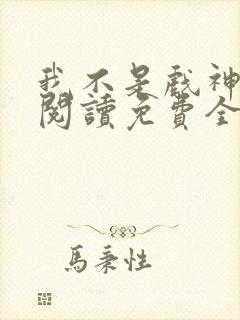 我不是戲神
閱讀免費全
馬秉性